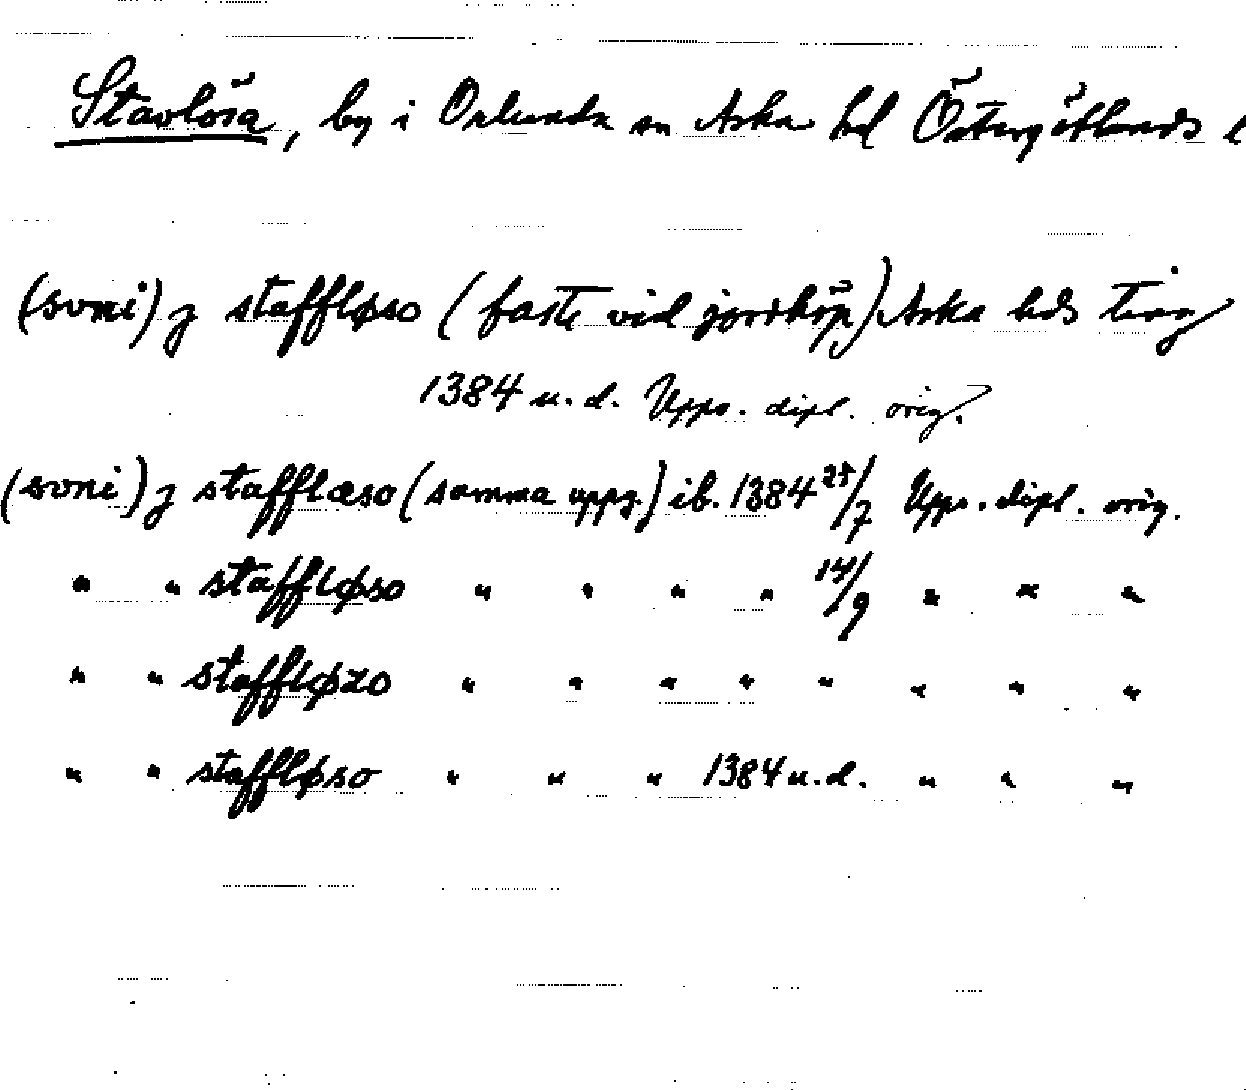 Stavlösa, by i Orlunda sn Aska hd Östergötlands l
(svni) j staffløso (faste vid jordköp) Aska hds ting
1384 u.d. Upps. dipl. orig.
(svni) j stafflæso (samma uppg.) ib. 1384 25/7 Upps. dipl. orig.
" " staffløso " " " " 14/9 " " "
" " staffløzo " " " " " " " "
" " staffløso " " " 1384 u.d. " " "